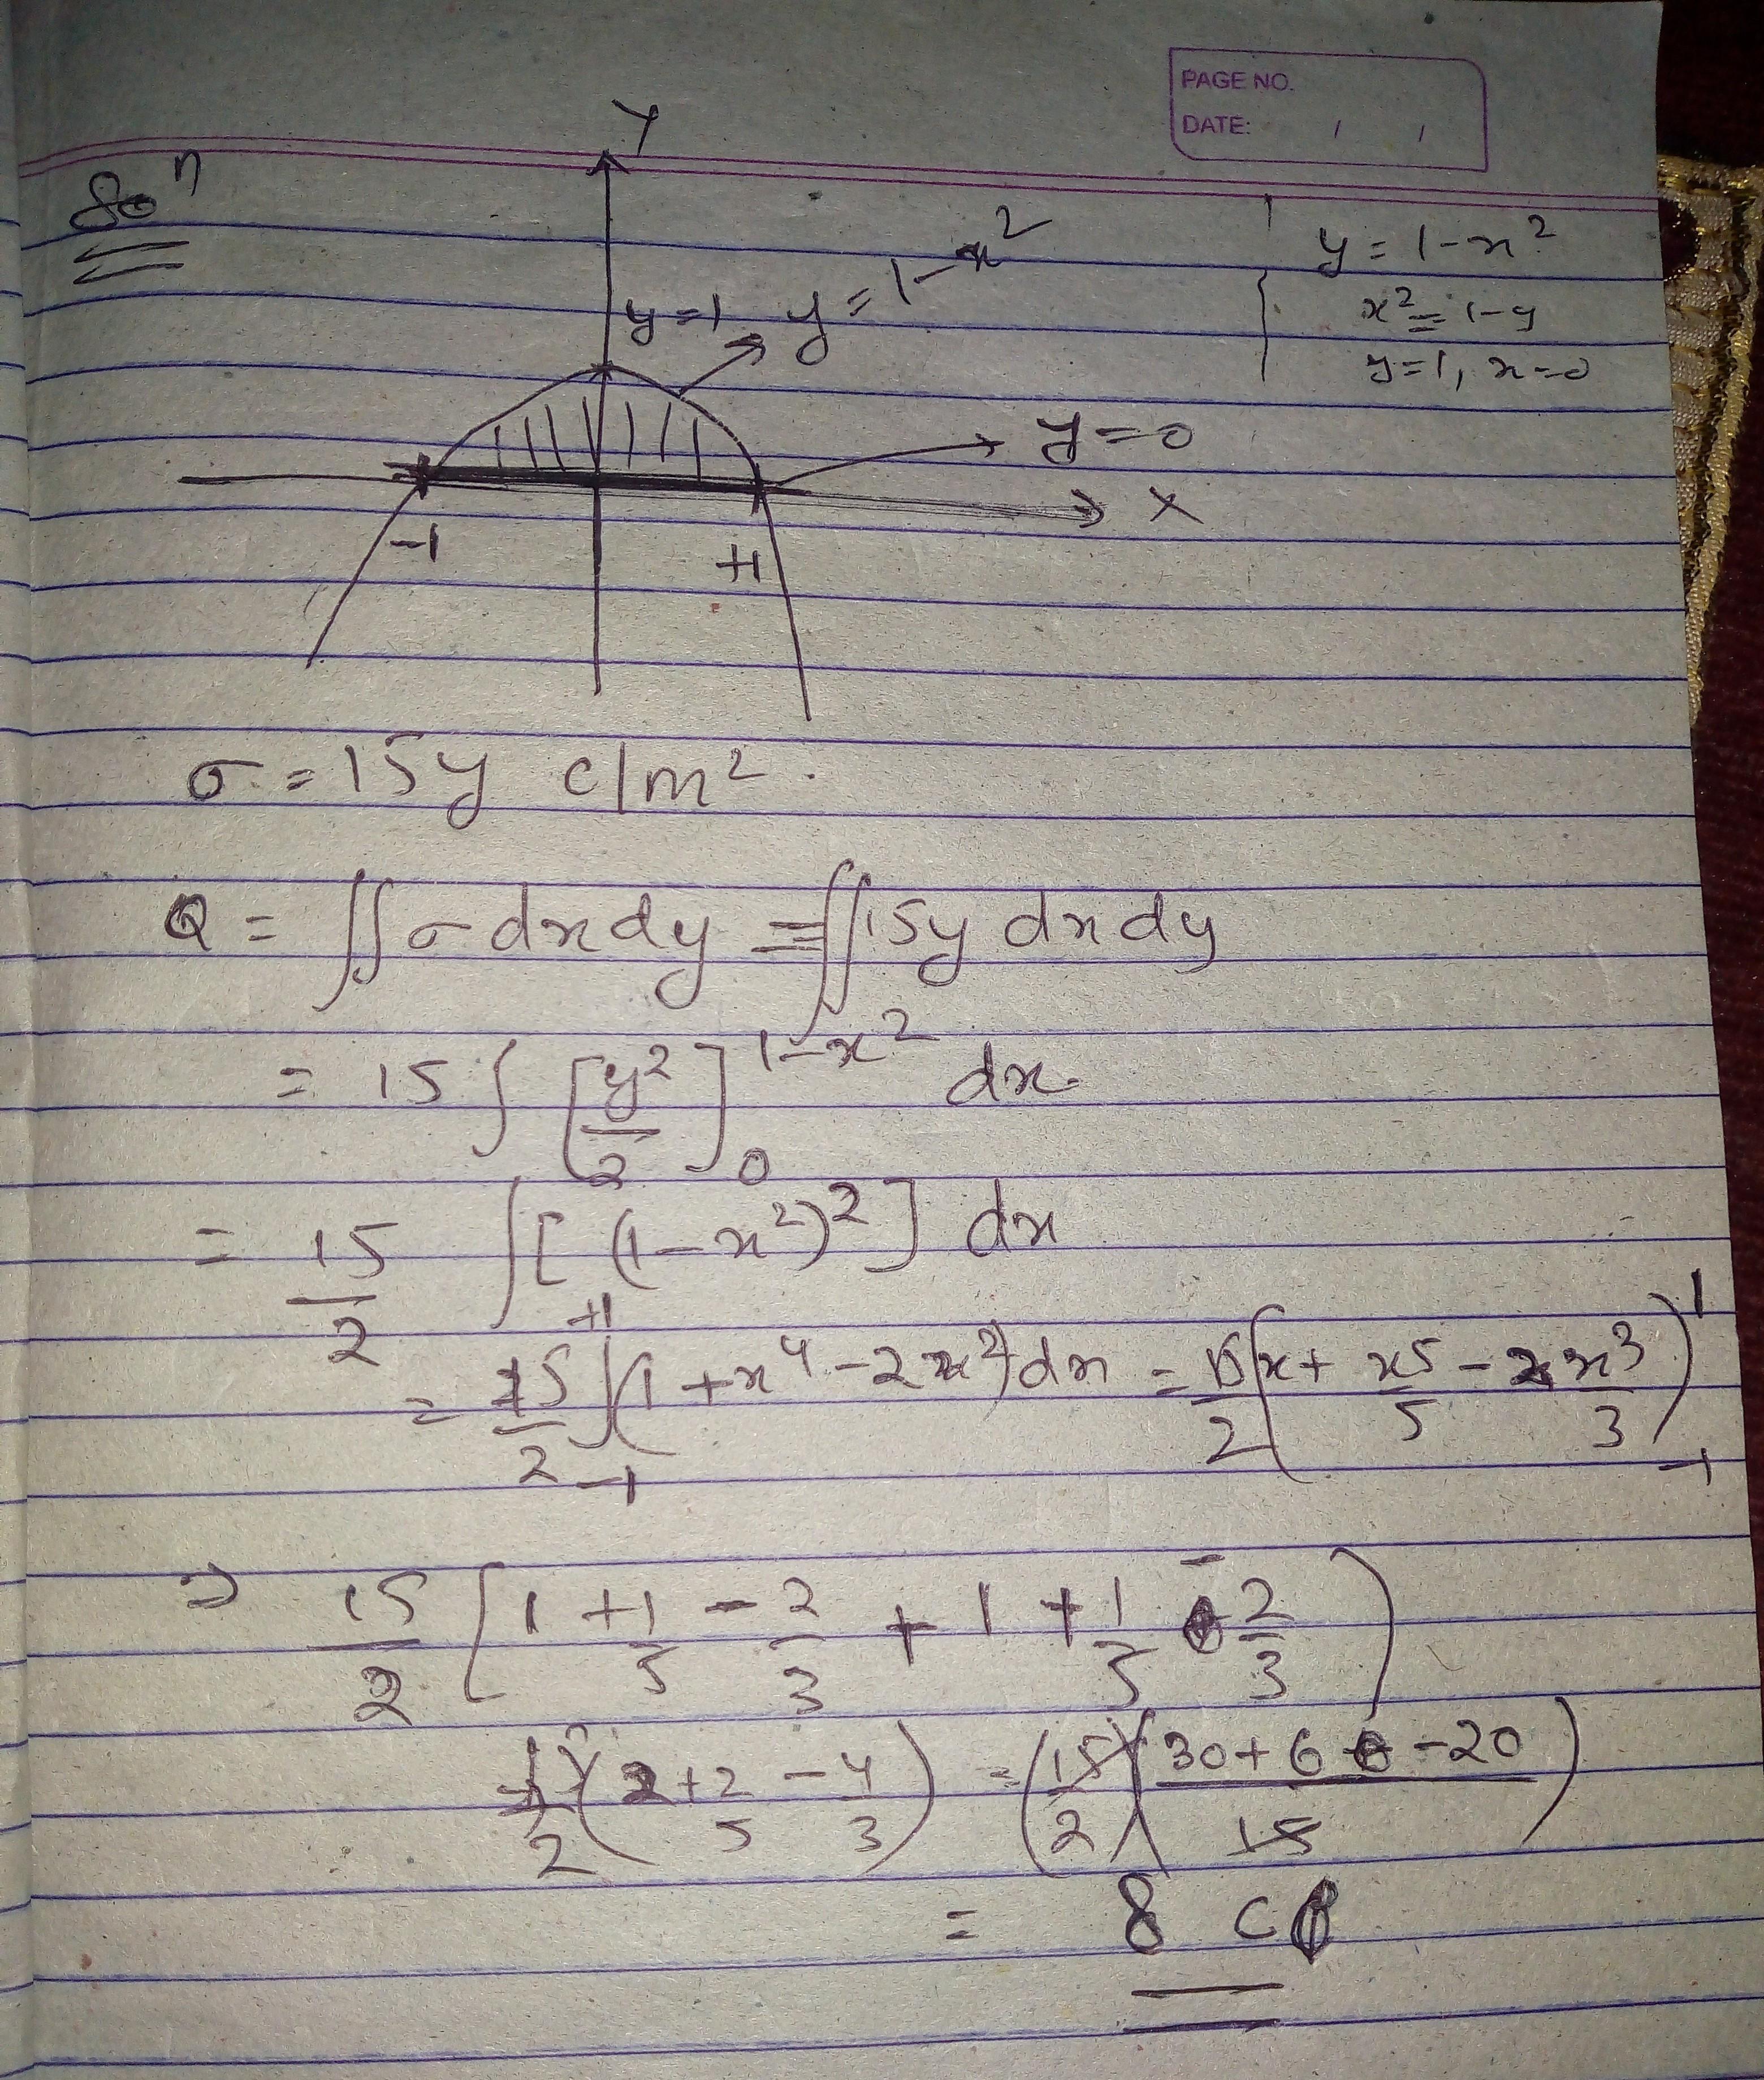 PAGE NO.
DATE: / /
Soⁿ
Y
y = 1 - x²
x² = 1 - y
y = 1, x = 0
y = 1
y = 1 - x²
y = 0
X
-1
+1
σ = 15y c/m².
Q = ∬ σ dx dy = ∬ 15y dx dy
= 15 ∫ [y²/2]₀^(1-x²) dx
= 15/2 ∫ [(1 - x²)²] dx
= 15/2 ∫₋₁^(+1) (1 + x⁴ - 2x²) dx = 15/2 (x + x⁵/5 - 2x³/3)₋₁^1
⇒ 15/2 [1 + 1/5 - 2/3 + 1 + 1/5 - 2/3)
15/2 (2 + 2/5 - 4/3) = (15/2)((30 + 6 - 20)/15)
= 8 C